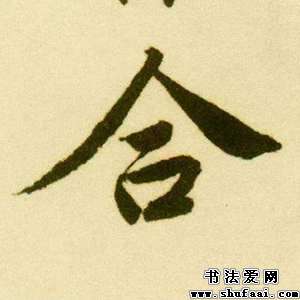 合
书法爱网
www.shufaai.com